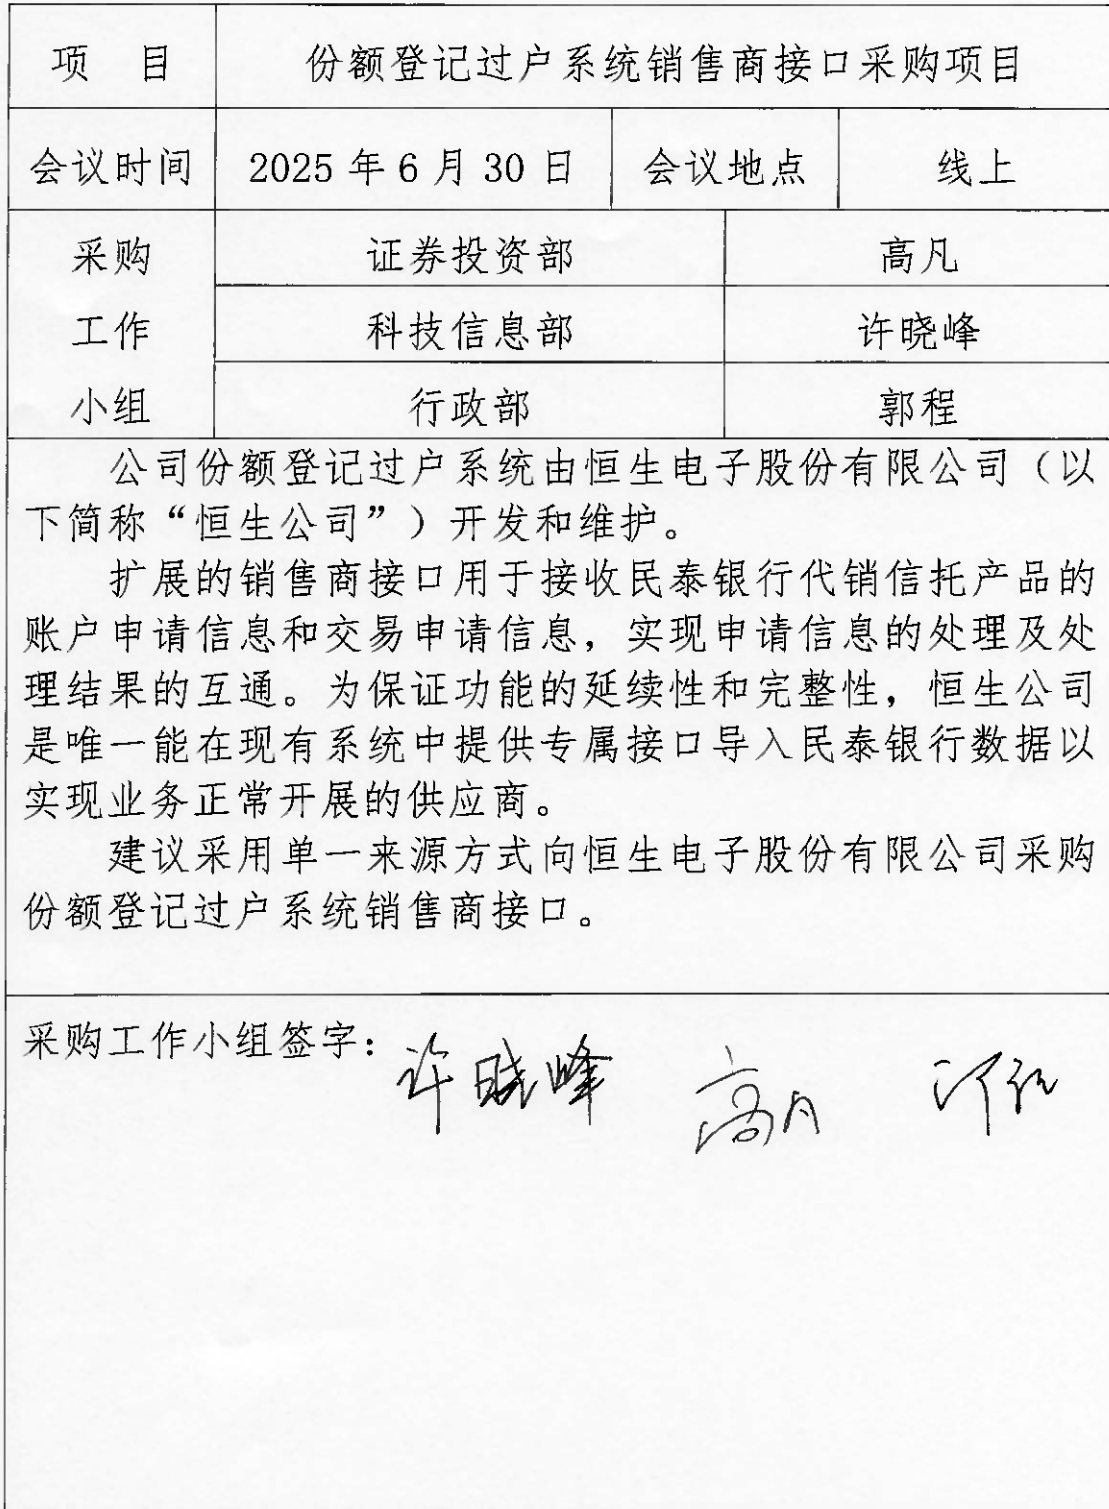 项 目 份额登记过户系统销售商接口采购项目
会议时间 2025 年 6 月 30 日 会议地点 线上
采购 证券投资部 高凡
工作 科技信息部 许晓峰
小组 行政部 郭程
公司份额登记过户系统由恒生电子股份有限公司（以
下简称“恒生公司”）开发和维护。
扩展的销售商接口用于接收民泰银行代销信托产品的
账户申请信息和交易申请信息，实现申请信息的处理及处
理结果的互通。为保证功能的延续性和完整性，恒生公司
是唯一能在现有系统中提供专属接口导入民泰银行数据以
实现业务正常开展的供应商。
建议采用单一来源方式向恒生电子股份有限公司采购
份额登记过户系统销售商接口。
采购工作小组签字：
许晓峰 高凡